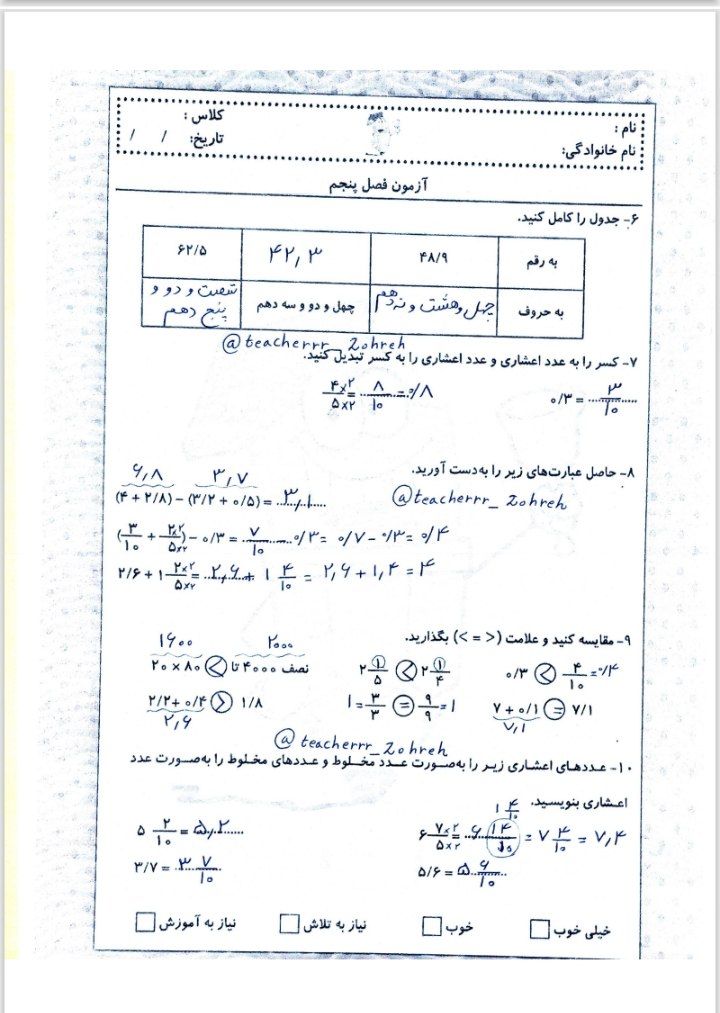 نام :
کلاس :
نام خانوادگی:
تاریخ: / /
آزمون فصل پنجم
۶- جدول را کامل کنید.
به رقم ۴۸/۹ ۴۲,۳ ۶۲/۵
به حروف چهل و هشت و نه دهم چهل و دو و سه دهم شصت و دو و پنج دهم
@teacherrr_Zohreh
۷- کسر را به عدد اعشاری و عدد اعشاری را به کسر تبدیل کنید.
۰/۳ = ۳/۱۰
۴×۲/۵×۲ = ۸/۱۰ = ۰/۸
۸- حاصل عبارت‌های زیر را به‌دست آورید.
@teacherrr_Zohreh
۶,۸ ۳,۷
(۴ + ۲/۸) – (۳/۲ + ۰/۵) = ۳,۱
(۳/۱۰ + ۲×۲/۵×۲) – ۰/۳ = ۷/۱۰ - ۰/۳ = ۰/۷ - ۰/۳ = ۰/۴
۲/۶ + ۱ ۲×۲/۵×۲ = ۲,۶ + ۱ ۴/۱۰ = ۲,۶ + ۱,۴ = ۴
۹- مقایسه کنید و علامت (< = >) بگذارید.
۰/۳ < ۴/۱۰ = ۰/۴
۲ ۱/۵ < ۲ ۱/۴
۱۶۰۰ ۲۰۰۰
۲۰ × ۸۰ < نصف ۴۰۰۰ تا
۷ + ۰/۱ = ۷/۱
۷,۱
۱ = ۳/۳ = ۹/۹ = ۱
۲/۲ + ۰/۴ > ۱/۸
۲,۶
@teacherrr_Zohreh
۱۰- عـددهـای اعشـاری زیـر را به‌صـورت عـدد مخـلوط و عـددهای مخـلوط را به‌صـورت عدد
اعـشاری بنویسـید.
۱ ۴/۱۰
۶ ۷×۲/۵×۲ = ۶ ۱۴/۱۰ = ۷ ۴/۱۰ = ۷,۴
۵ ۲/۱۰ = ۵,۲
۵/۶ = ۵ ۶/۱۰
۳/۷ = ۳ ۷/۱۰
خیلی خوب خوب نیاز به تلاش نیاز به آموزش